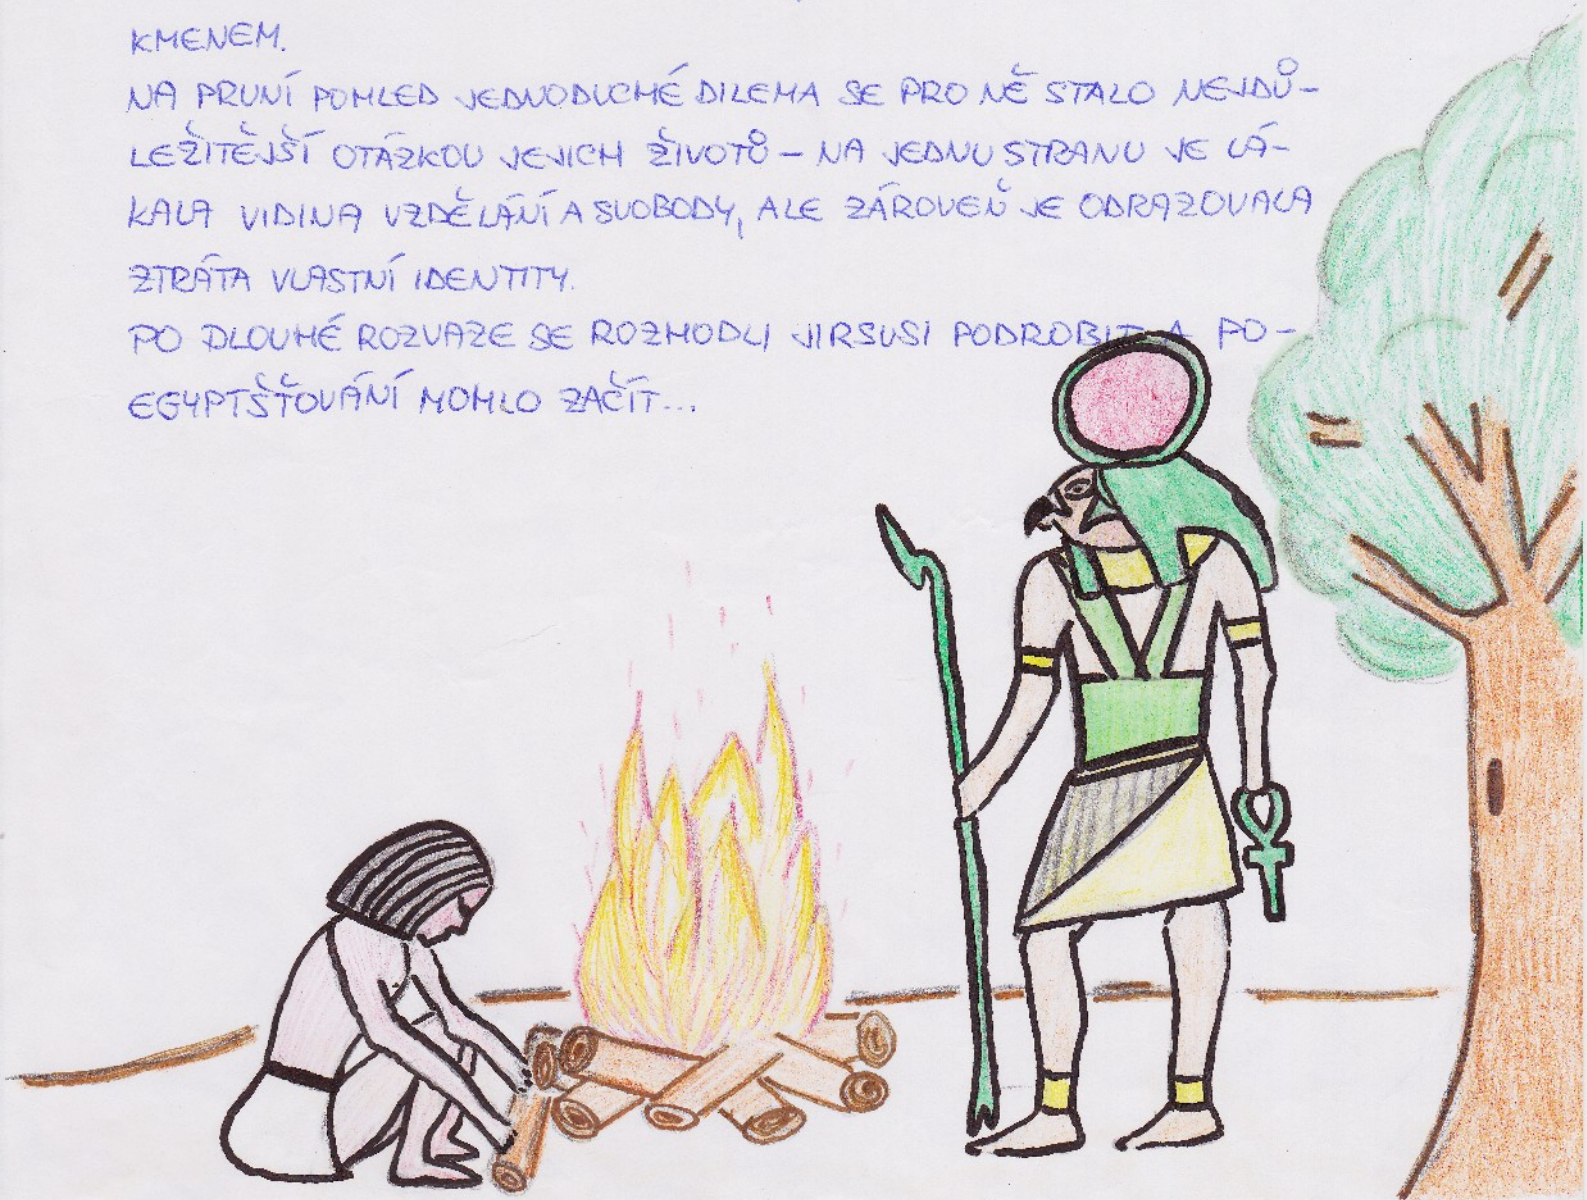 KMENEM.
NA PRVNÍ POHLED JEDNODUCHÉ DILEMA SE PRO NĚ STALO NEJDŮ-
LEŽITĚJŠÍ OTÁZKOU JEJICH ŽIVOTŮ – NA JEDNU STRANU JE LÁ-
KALA VIDINA VZDĚLÁNÍ A SVOBODY, ALE ZÁROVEŇ JE ODRAZOVALA
ZTRÁTA VLASTNÍ IDENTITY.
PO DLOUHÉ ROZVAZE SE ROZHODLI JIRSUSI PODROBIT A PO-
EGYPTŠŤOVÁNÍ MOHLO ZAČÍT...